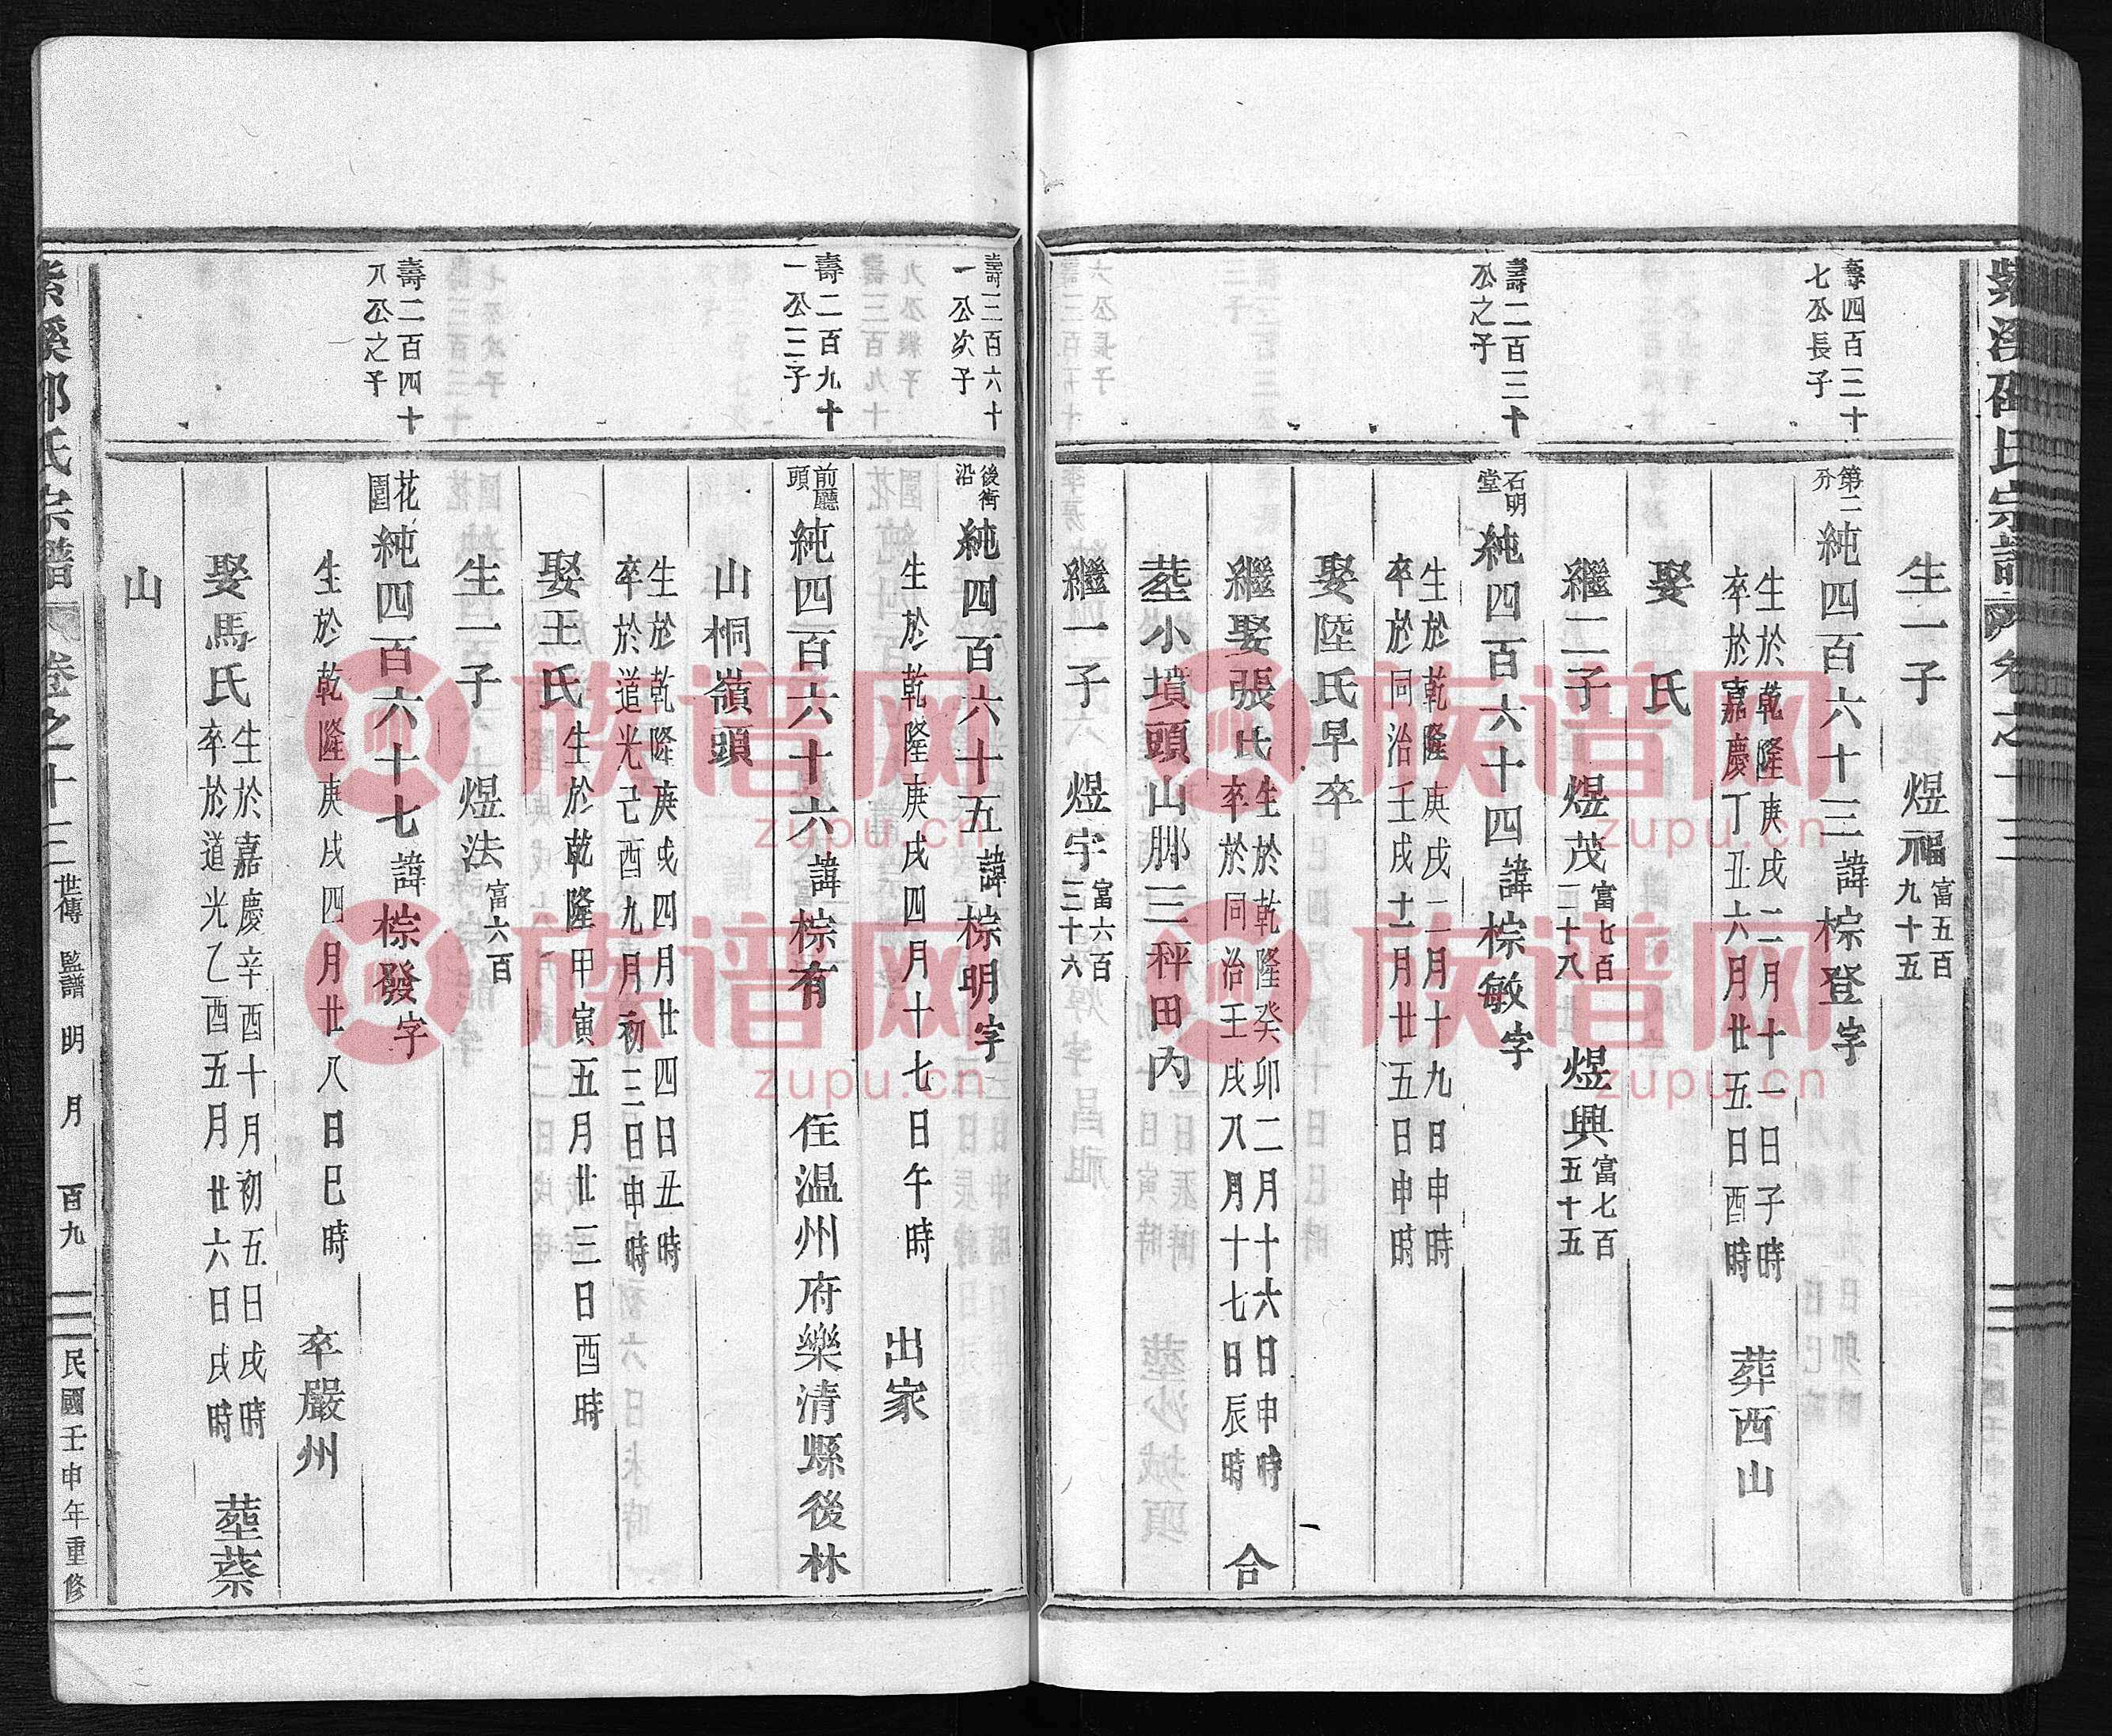 生一子 煜福富五百九十五
壽四百三十七公長子
第二分 純四百六十三諱棕登字
生於乾隆庚戌二月十一日子時
卒於嘉慶丁丑六月廿五日酉時 葬西山
娶 氏
繼二子 煜茂富七百二十八 煜興富七百五十五
壽二百三十公之子
石明堂 純四百六十四諱棕敏字
生於乾隆庚戌二月十九日申時
卒於同治壬戌十一月廿五日申時
娶陸氏早卒
繼娶張氏生於乾隆癸卯二月十六日申時卒於同治壬戌八月十七日辰時 合
塟小墳頭山脚三秤田內
繼一子 煜宇富六百三十六
壽三百六十一公次子
後衕沿 純四百六十五諱棕明字
生於乾隆庚戌四月十七日午時 出家
壽二百九十一公三子
前廳頭 純四百六十六諱棕有 住温州府樂清縣後林
山桐嶺頭
生於乾隆庚戌四月廿四日丑時
卒於道光己酉九月初三日申時
娶王氏生於乾隆甲寅五月廿三日酉時
生一子 煜法富六百
壽二百四十八公之子
花園 純四百六十七諱棕發字
生於乾隆庚戌四月廿八日巳時 卒嚴州
娶馬氏生於嘉慶辛酉十月初五日戌時卒於道光乙酉五月廿六日戌時 塟蔡
山
紫溪邵氏宗譜 卷之十三 世傳 監譜 明 月 百九 民國壬申年重修